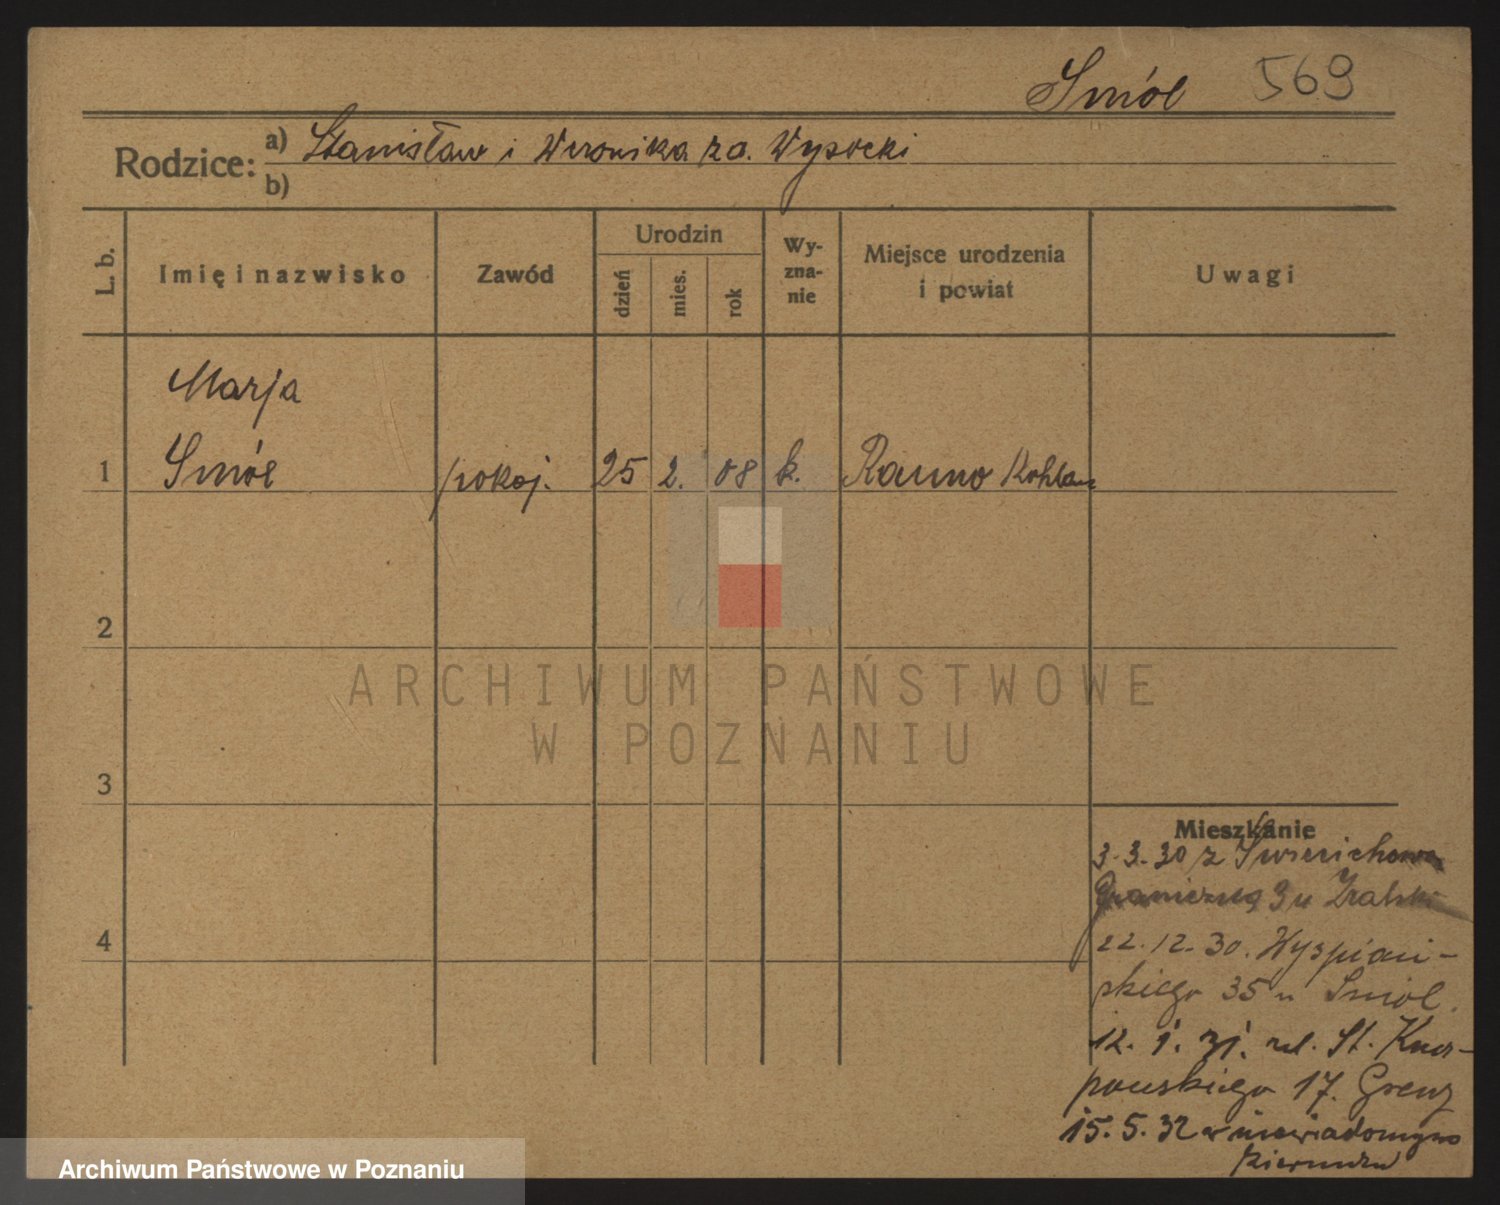 Smól 569
Rodzice: a) Stanisław i Weronika za. Wysocki
b)
L. b. Imię i nazwisko Zawód Urodzin dzień mies. rok Wy-zna-nie Miejsce urodzenia i powiat Uwagi
Marja
1 Smól pokoj. 25 2. 08 k.
2
3
4
ARCHIWUM PAŃSTWOWE
W POZNANIU
Mieszkanie
3.3.30 z
Graniczną 3 u
22.12.30. Wyspiań-
skiego 35 u Smól.
12. 1. 31. ul. St. Knap-
powskiego 17.
15. 5. 32 w niewiadomym
kierunku
Archiwum Państwowe w Poznaniu